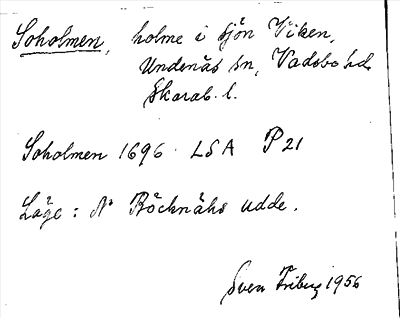 Soholmen, holme i sjön Viken,
Undenäs sn, Vadsbo hd
Skarab. l.
Soholmen 1696 LSA P 21
Läge: N° Röcknäks udde.
Sven Friberg 1956